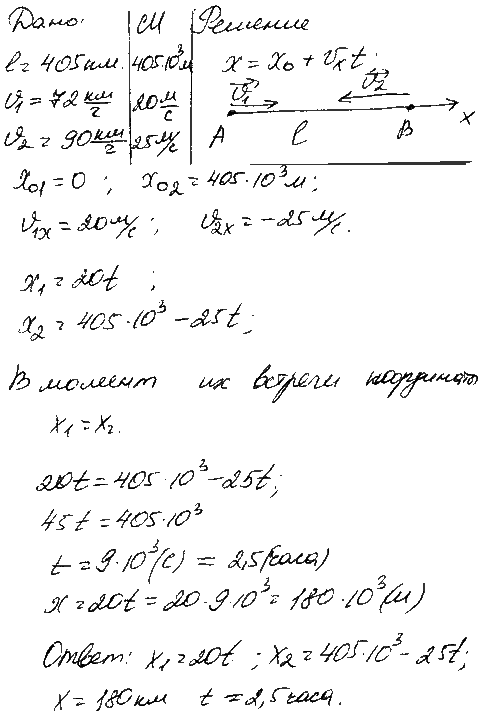 Дано: СИ Решение
l = 405 км. 405·10³м x = x₀ + vₓt
v₁ = 72 км/г 20 м/с v₁ v₂
v₂ = 90 км/г 25 м/с A l B x
x₀₁ = 0 ; x₀₂ = 405·10³ м;
v₁ₓ = 20 м/с ; v₂ₓ = −25 м/с.
x₁ = 20t ;
x₂ = 405·10³ − 25t;
В момент их встречи координаты
x₁ = x₂.
20t = 405·10³ − 25t;
45t = 405·10³
t = 9·10³(с) = 2,5(часа)
x = 20t = 20·9·10³ = 180·10³(м)
Ответ: x₁ = 20t ; x₂ = 405·10³ − 25t;
x = 180 км t = 2,5 часа.